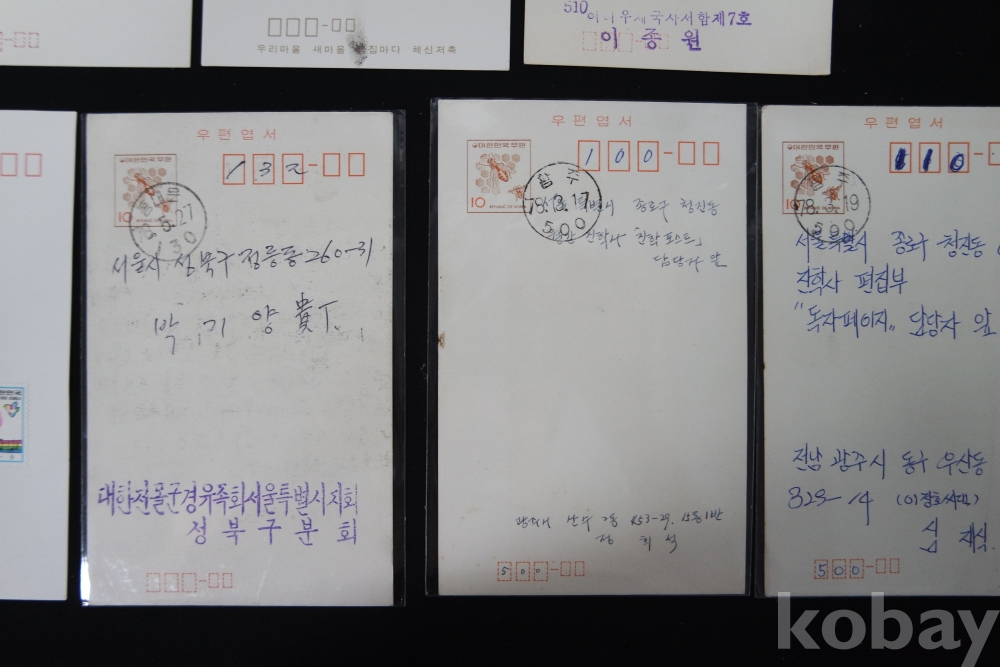 우리마을 새마을 집마다 체신저축
510
제7호
이종원
우편엽서
대한민국우편
10
132
27
130
서울시 성북구 정릉동 260-31
박기양 貴下
대한전몰군경유족회서울특별시지회
성북구분회
우편엽서
대한민국우편
10
100
광주
78.3.17
500
종로구 청진동
진학사
담당자 앞
산수 2동 453-29
정 희석
500
우편엽서
대한민국우편
10
110
광주
78.3.19
500
서울특별시 종로구 청진동
진학사 편집부
"독자페이지" 담당자 앞
전남 광주시 동구 우산동
328-14
심 재식
500
kobay